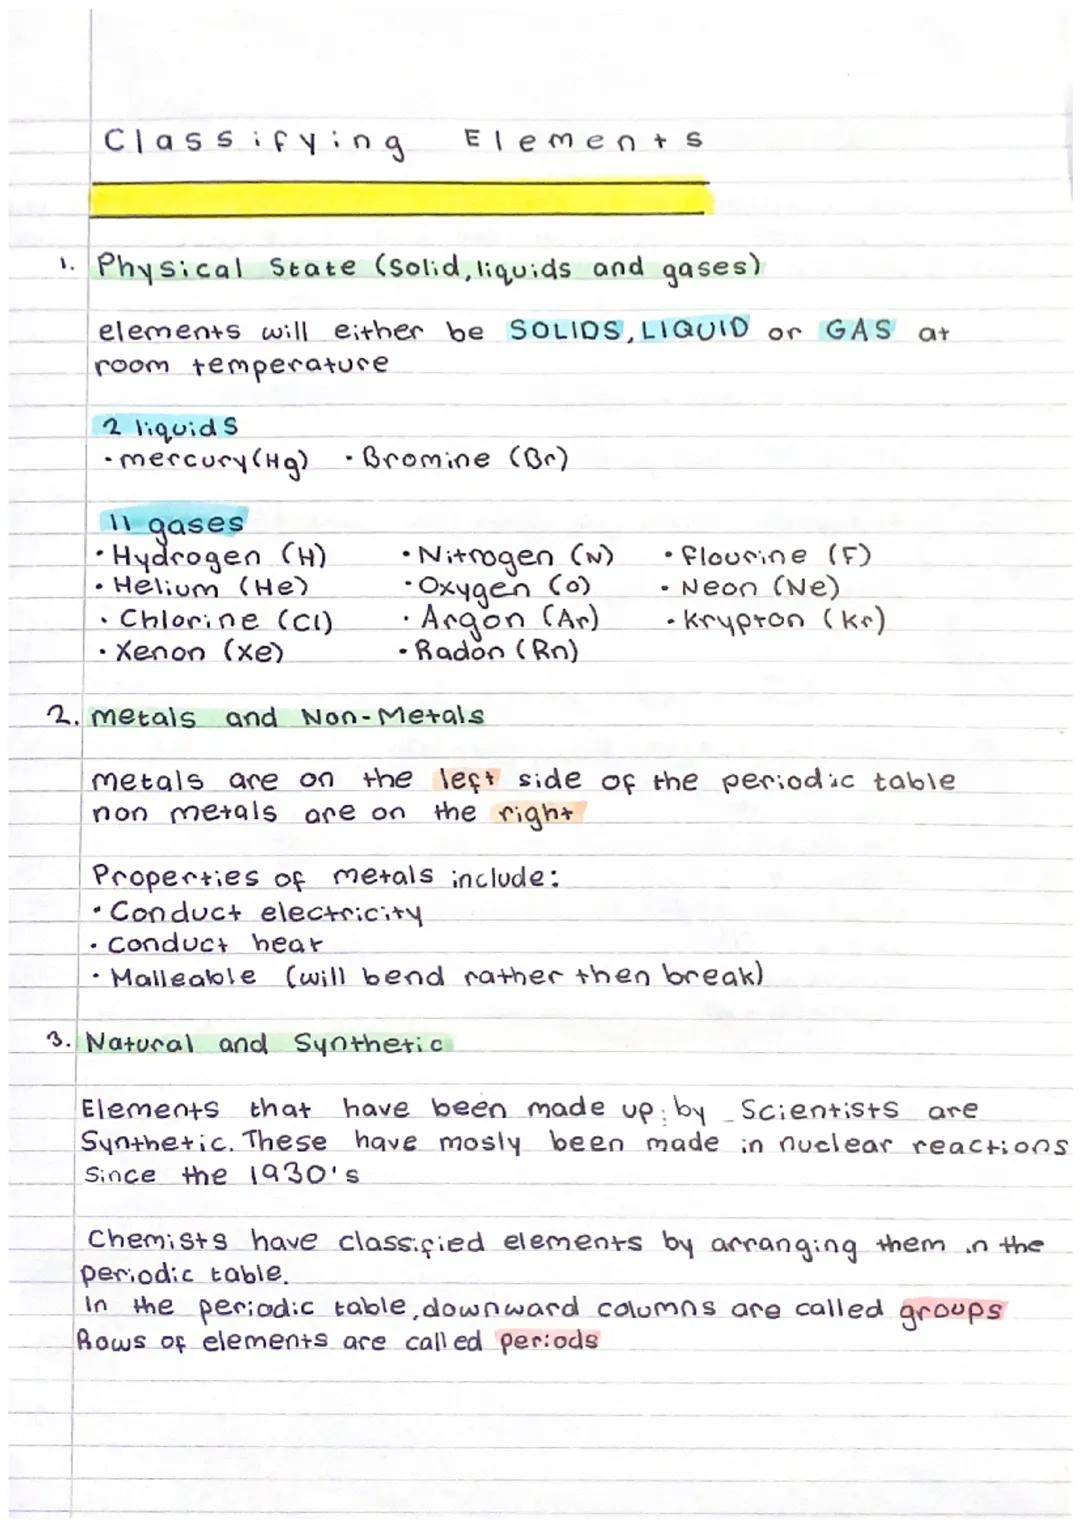 Classifying Elements
1. Physical State (Solid, liquids and gases)
elements will either be SOLIDS, LIQUID or GAS at
room temperature
2 liquids
· mercury (Hg) · Bromine (Br)
11 gases
· Hydrogen (H) · Nitrogen (N) · flourine (F)
· Helium (He) · Oxygen (O) · Neon (Ne)
· Chlorine (Cl) · Argon (Ar) · krypton (Kr)
· Xenon (Xe) · Radon (Rn)
2. metals and Non-Metals
metals are on the left side of the periodic table
non metals are on the right
Properties of metals include:
· Conduct electricity
· conduct heat
· Malleable (will bend rather then break)
3. Natural and Synthetic
Elements that have been made up by Scientists are
Synthetic. These have mosly been made in nuclear reactions
Since the 1930's
Chemists have classified elements by arranging them in the
periodic table.
In the periodic table, downward columns are called groups
Rows of elements are called periods